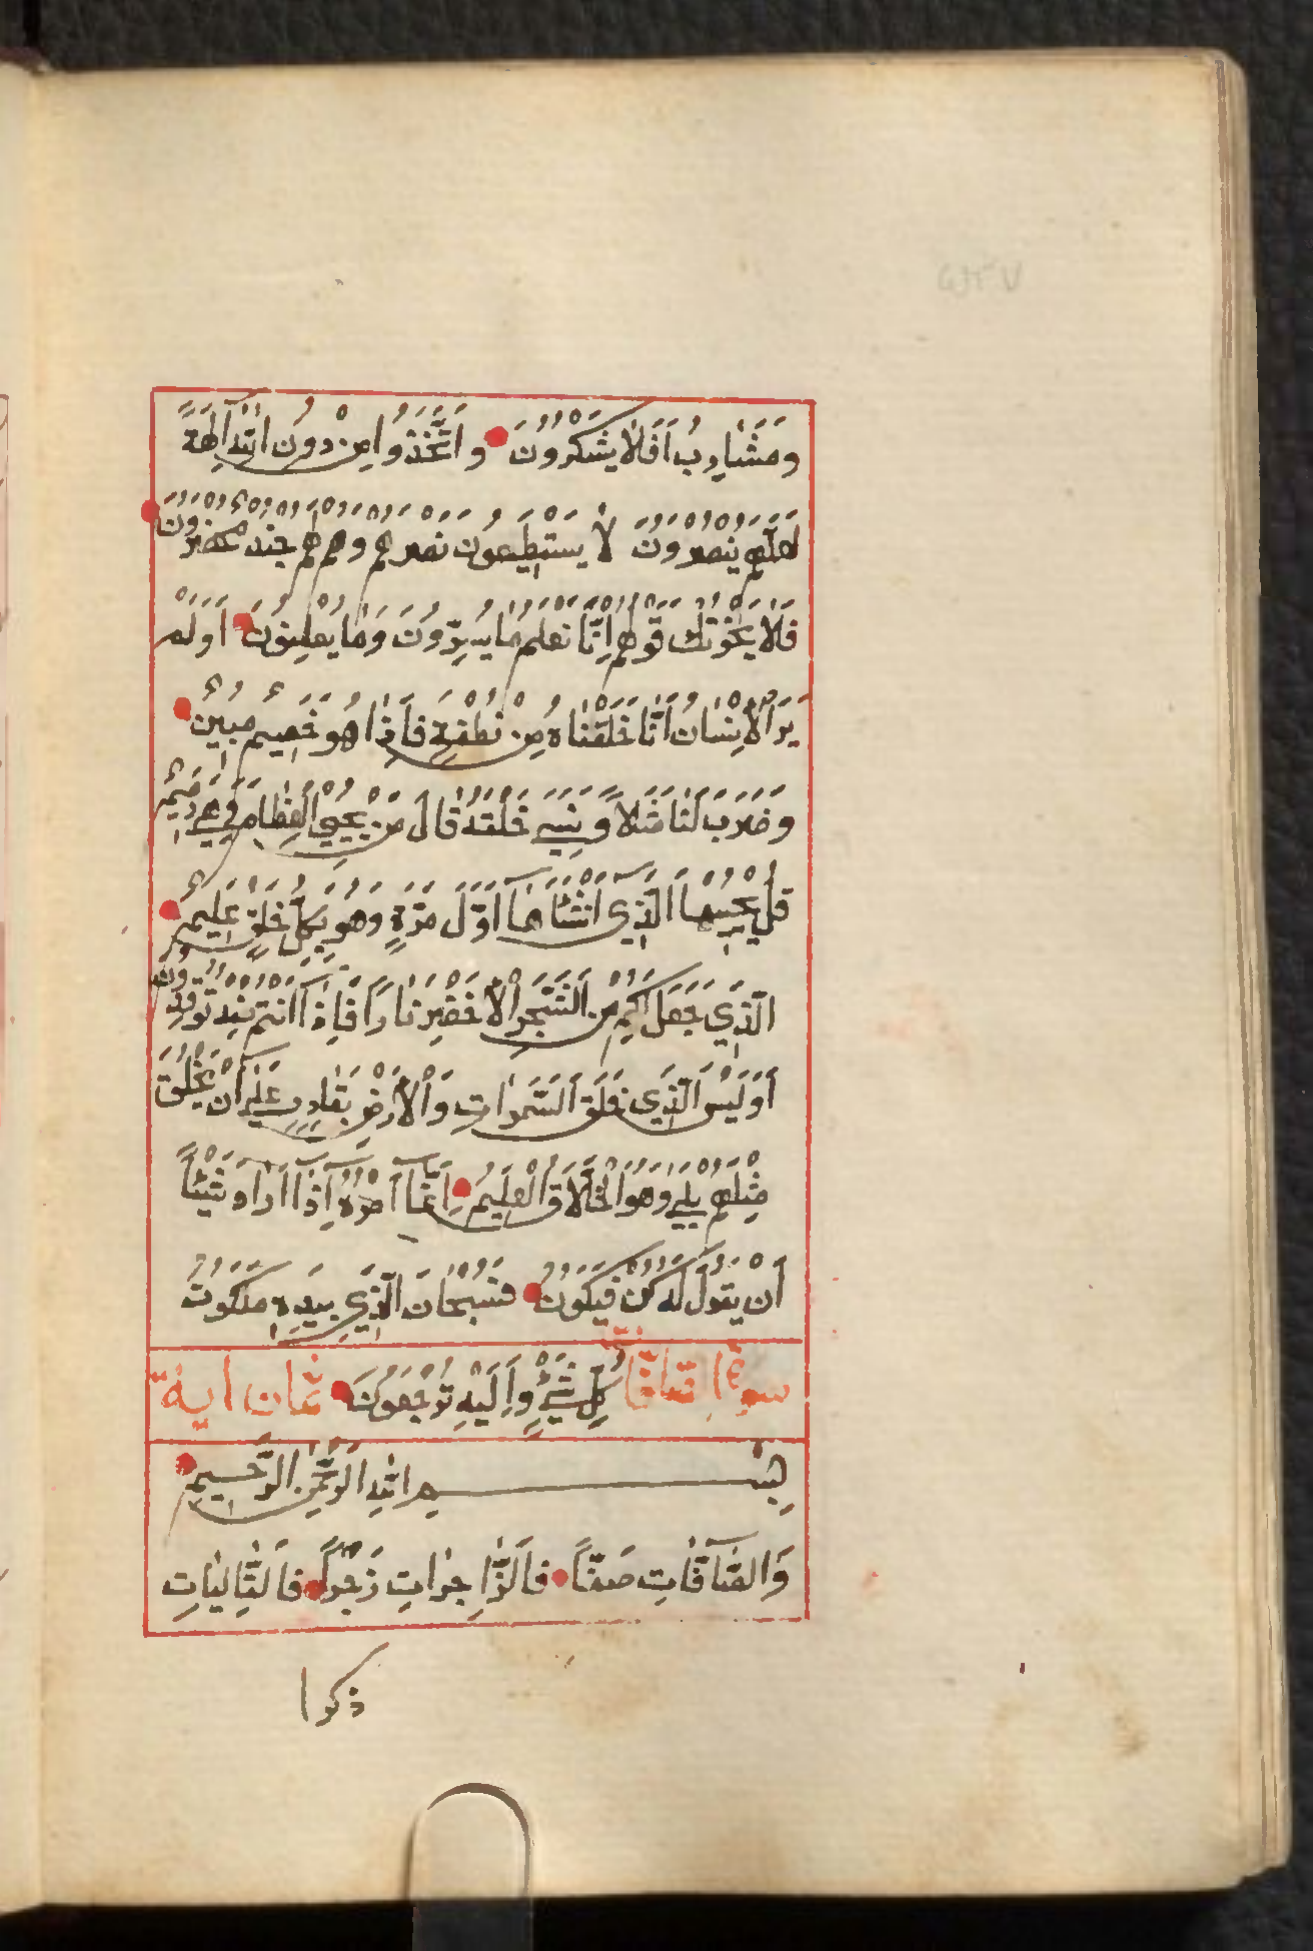 وَمَشَارِبُ اَفَلَا يَشْكُرُونَ وَاتَّخَذُوا مِنْ دُونِ اللّٰهِ آلِهَةً
لَعَلَّهُمْ يُنْصَرُونَ لَا يَسْتَطِيعُونَ نَصْرَهُمْ وَهُمْ لَهُمْ جُنْدٌ مُحْضَرُونَ
فَلَا يَحْزُنْكَ قَوْلُهُمْ اِنَّا نَعْلَمُ مَا يُسِرُّونَ وَمَا يُعْلِنُونَ اَوَلَمْ
يَرَ الْاِنْسَانُ اَنَّا خَلَقْنَاهُ مِنْ نُطْفَةٍ فَاِذَا هُوَ خَصِيمٌ مُبِينٌ
وَضَرَبَ لَنَا مَثَلًا وَنَسِيَ خَلْقَهُ قَالَ مَنْ يُحْيِي الْعِظَامَ وَهِيَ رَمِيمٌ
قُلْ يُحْيِيهَا الَّذِي اَنْشَاَهَا اَوَّلَ مَرَّةٍ وَهُوَ بِكُلِّ خَلْقٍ عَلِيمٌ
الَّذِي جَعَلَ لَكُمْ مِنَ الشَّجَرِ الْاَخْضَرِ نَارًا فَاِذَا اَنْتُمْ مِنْهُ تُوقِدُونَ
اَوَلَيْسَ الَّذِي خَلَقَ السَّمٰوَاتِ وَالْاَرْضَ بِقَادِرٍ عَلٰى اَنْ يَخْلُقَ
مِثْلَهُمْ بَلٰى وَهُوَ الْخَلَّاقُ الْعَلِيمُ اِنَّمَا اَمْرُهُ اِذَا اَرَادَ شَيْئًا
اَنْ يَقُولَ لَهُ كُنْ فَيَكُونُ فَسُبْحَانَ الَّذِي بِيَدِهِ مَلَكُوتُ
كُلِّ شَيْءٍ وَاِلَيْهِ تُرْجَعُونَ
بِسْمِ اللّٰهِ الرَّحْمٰنِ الرَّحِيمِ
وَالصَّافَّاتِ صَفًّا فَالزَّاجِرَاتِ زَجْرًا فَالتَّالِيَاتِ
ذكرا